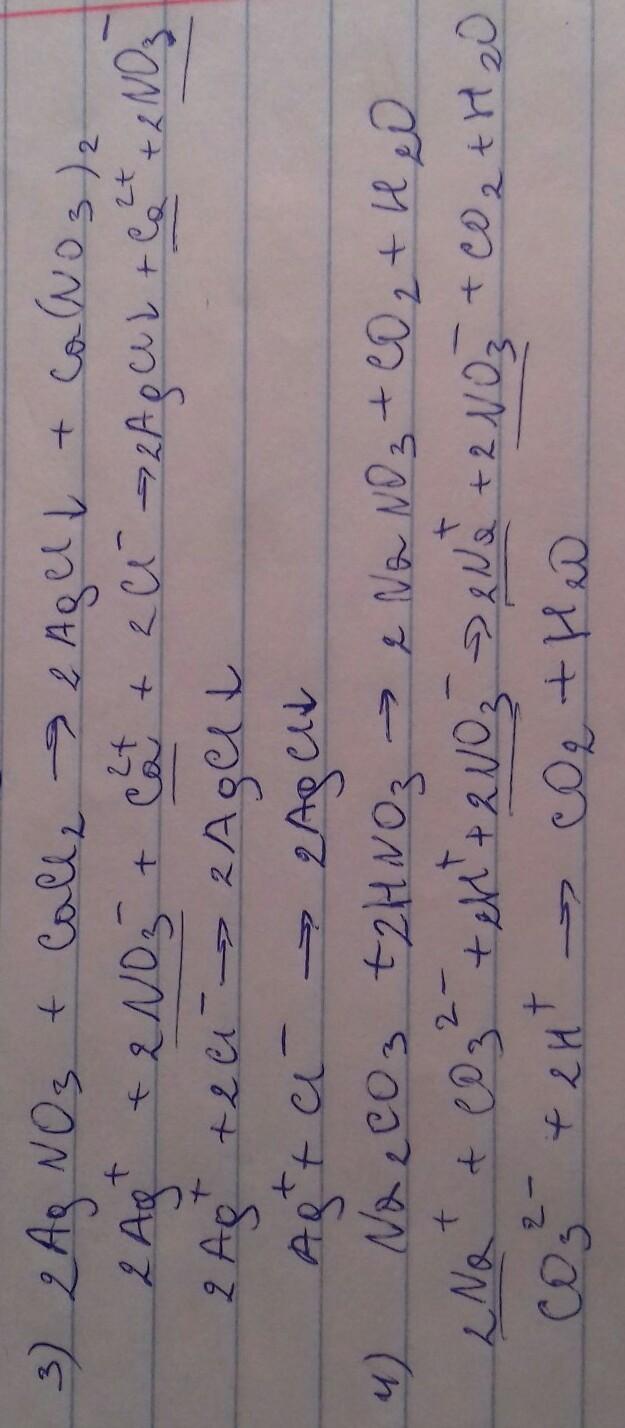 3) 2AgNO₃ + CaCl₂ → 2AgCl↓ + Ca(NO₃)₂
2Ag⁺ + 2NO₃⁻ + Ca²⁺ + 2Cl⁻ → 2AgCl↓ + Ca²⁺ + 2NO₃⁻
2Ag⁺ + 2Cl⁻ → 2AgCl↓
Ag⁺ + Cl⁻ → 2AgCl↓
4) Na₂CO₃ + 2HNO₃ → 2NaNO₃ + CO₂ + H₂O
2Na⁺ + CO₃²⁻ + 2H⁺ + 2NO₃⁻ → 2Na⁺ + 2NO₃⁻ + CO₂ + H₂O
CO₃²⁻ + 2H⁺ → CO₂ + H₂O